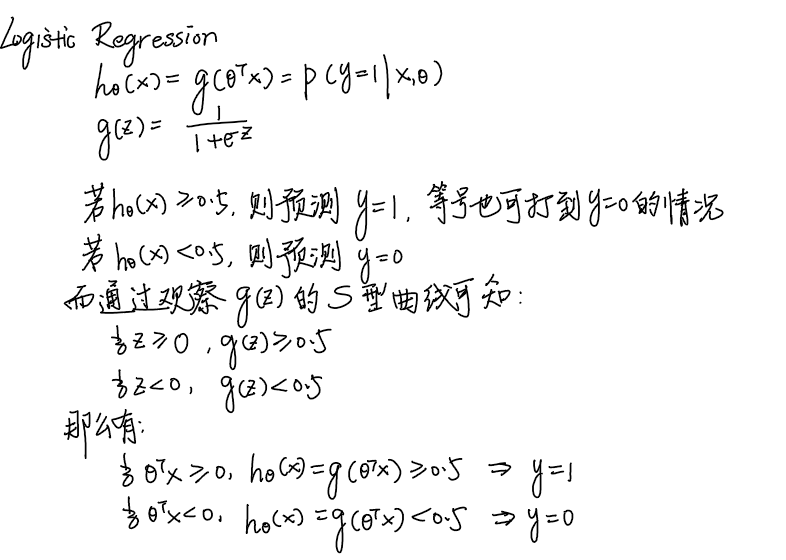 Logistic Regression
hθ(x) = g(θᵀx) = p(y=1|x,θ)
g(z) = 1/(1+e^-z)
若hθ(x)≥0.5,则预测 y=1, 等号也可打到y=0的情况
若hθ(x)<0.5,则预测 y=0
而通过观察 g(z)的S型曲线可知:
当z≥0,g(z)≥0.5
当z<0, g(z)<0.5
那么有:
当θᵀx≥0, hθ(x)=g(θᵀx)≥0.5 ⇒ y=1
当θᵀx<0, hθ(x)=g(θᵀx)<0.5 ⇒ y=0